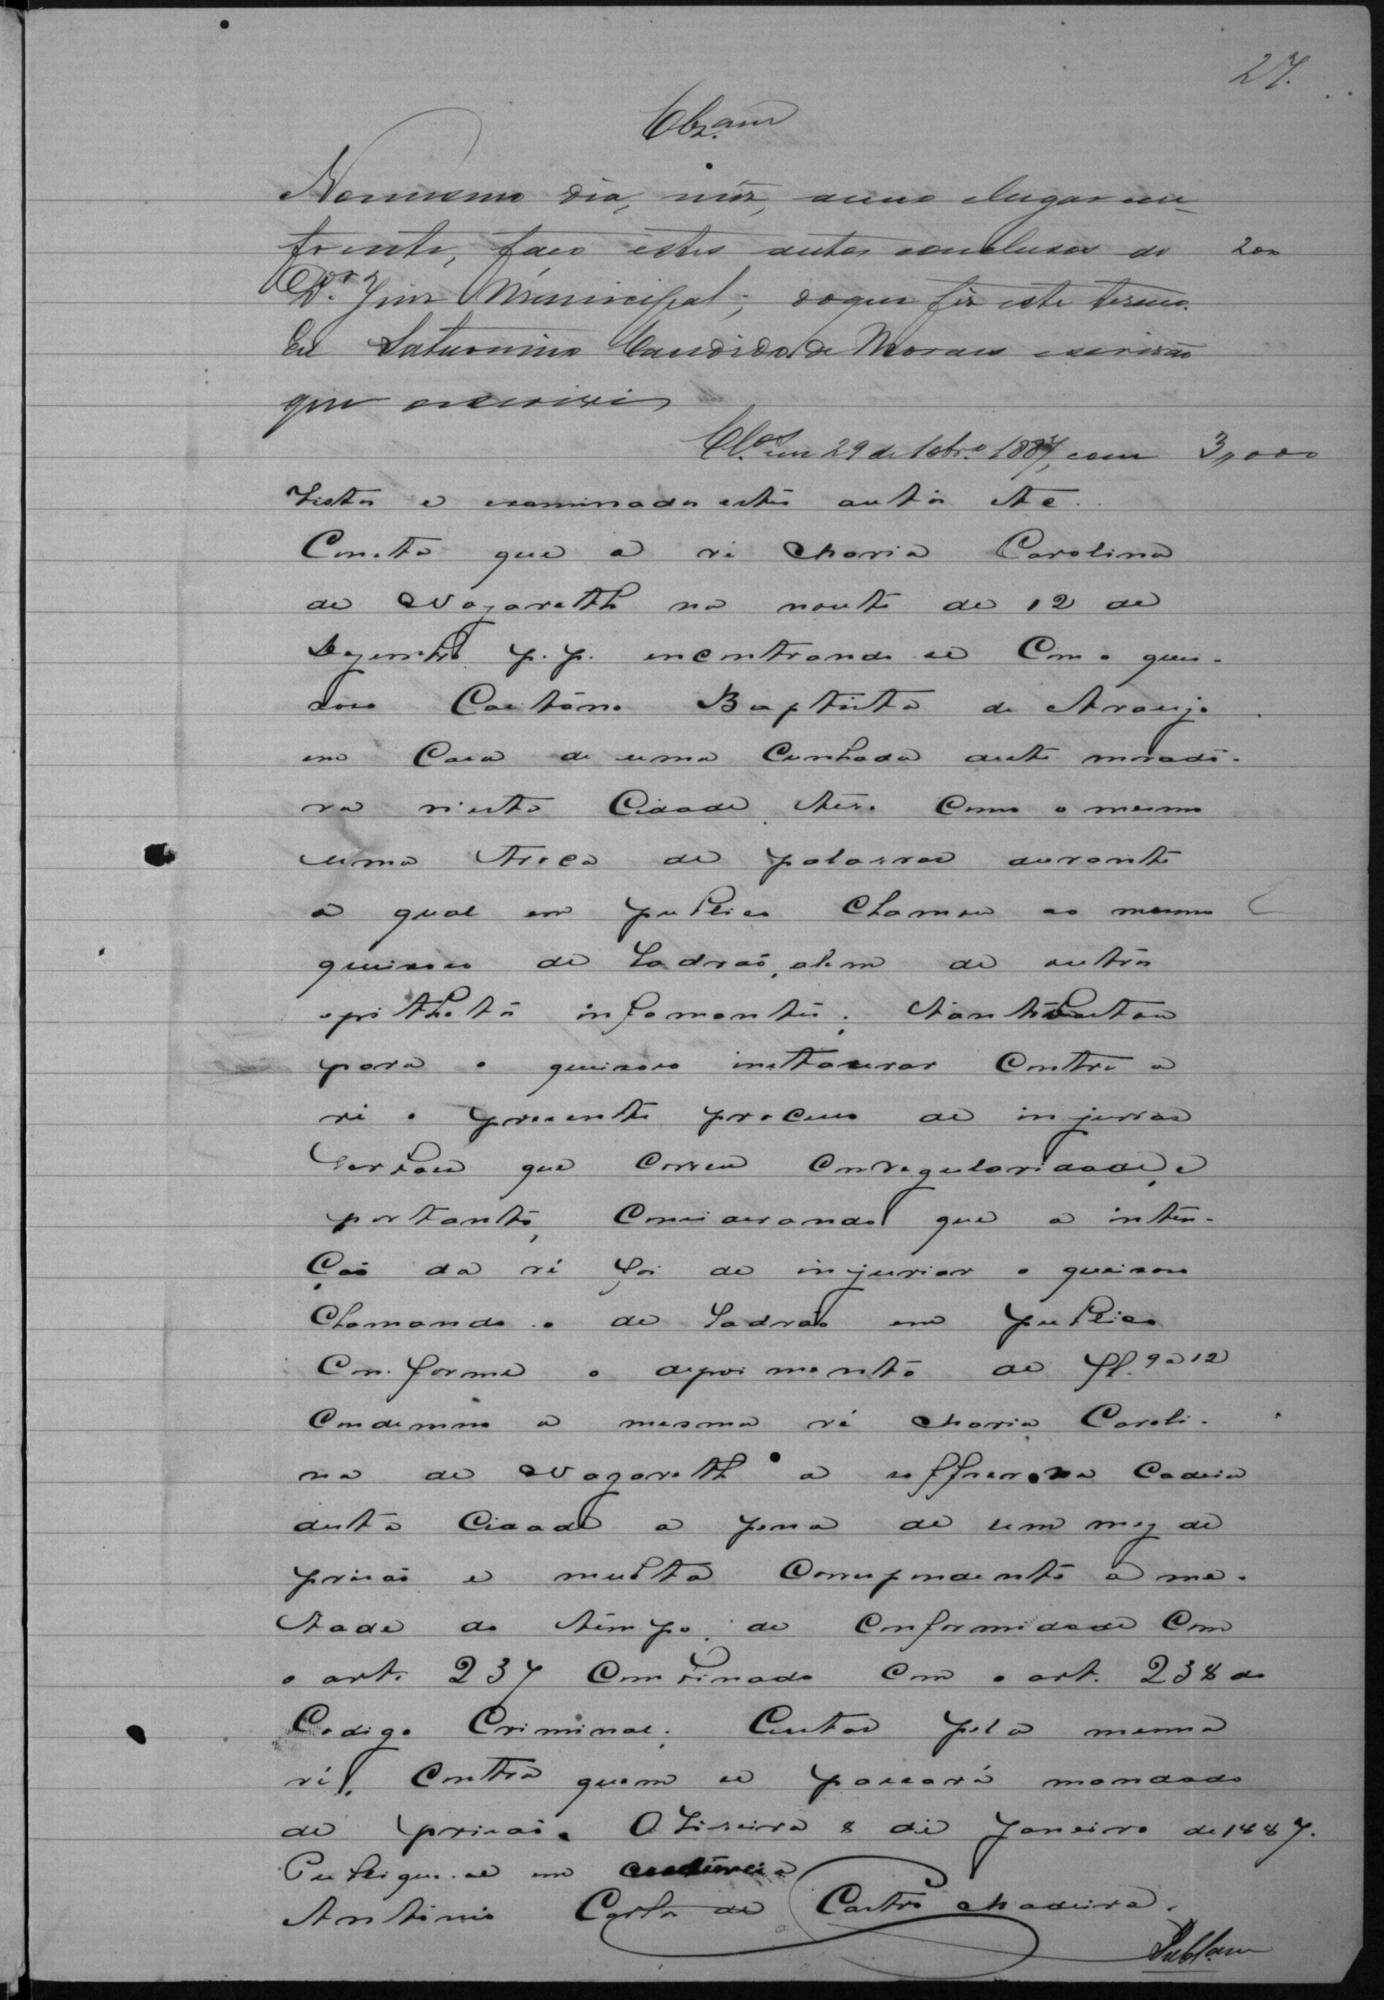 27.
Clz.am
No mesmo dia, mez, anno e lugar em-
frente, faço estes autos conclusos ao 200
Dr. Juiz Municipal; do que fiz este termo.
Eu Saturnino Candido de Moraes escrivão
que escrevi
Cl.os em 29 de 1887, com 3,000
Vistos e examinados estes autos etc.
Consta que a ré Maria Carolina
de Nazareth na noute de 12 de
Dezembro p.p. encontrando se com o quei-
xoso Caetano Baptista de Araujo
em casa de uma cunhada deste morado-
ra nesta Cidade, teve com o mesmo
uma troca de palavras durante
a qual em publico chamou ao mesmo
queixoso de ladrão, alem de outros
epithetos infamantes.
para o queixoso instaurar contra a
ré o presente processo de injurias
verbaes que correu com regularidade, e
portanto, considerando que a inten-
ção da ré foi de injuriar o queixoso
chamando-o de ladrão em publico
conforme o depoimento de fl. 9 a 12
Condemno a mesma ré Maria Caroli-
na de Nazareth a soffrer na Cadeia
desta Cidade a pena de um mez de
prisão e multa correspondente a me-
tade do tempo, de conformidade com
o art. 237 combinado com o art. 238 do
Codigo Criminal. Custas pela mesma
ré, contra quem se passará mandado
de prisão. Oliveira 8 de Janeiro de 1887.
Publique-se em audiencia
Antonio Carlos de Castro Madeira.
Publ.am